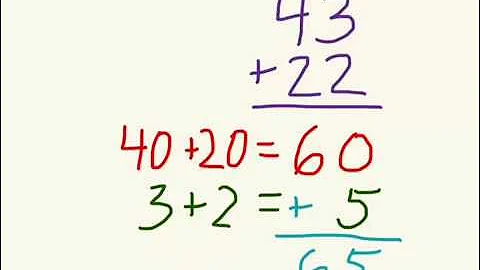 43
+22
40+20=60
3+2=+ 5
65